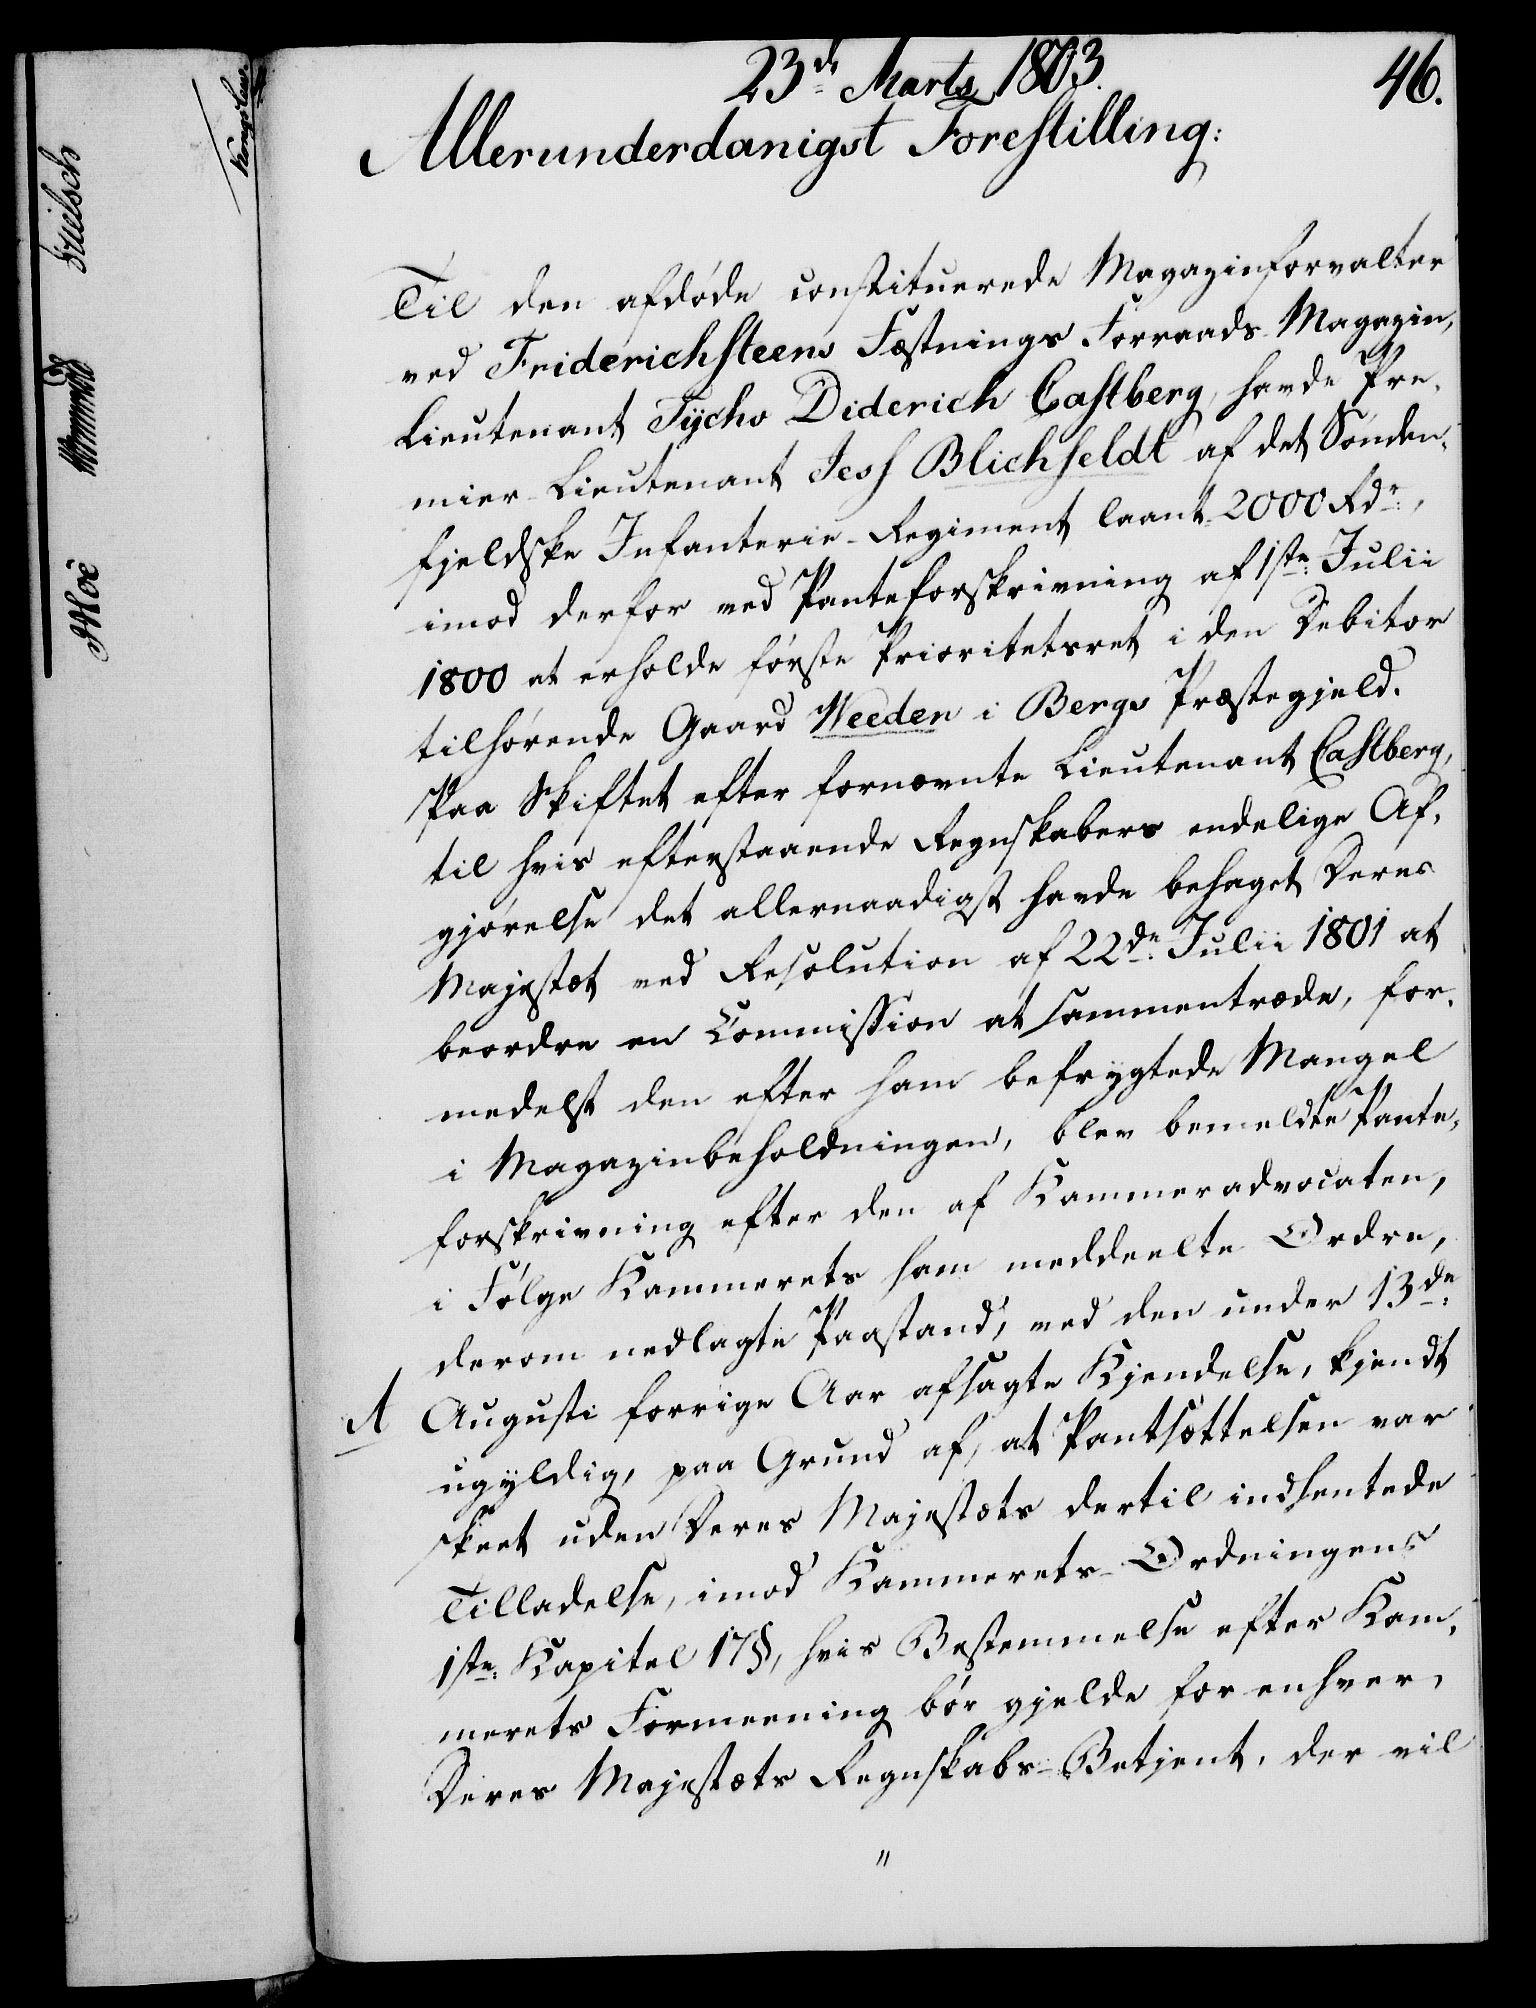 23de Marts 1803.
46.
Allerunderdanigst Forestilling:
Til den afdöde constituerede Magazinforvalter
ved Friderichsteens Fæstnings Forraads-Magazin,
Lieutenant Tycho Diderich Castberg, havde Pre-
mier-Lieutenant Jess Blichfeldt af det Sönden-
fjeldske Infanterie-Regiment laant 2000 Rdr.,
imod derfor ved Panteforskrivning af 1ste Julii
1800 at erholde förste Prioritetsret i den Debitor
tilhörende Gaard Weeden i Bergs Præstegjeld.
Paa Skiftet efter fornævnte Lieutenant Castberg,
til hvis efterstaaende Regnskabers endelige Af-
gjörelse det allernaadigst havde behaget Deres
Majestæt ved Resolution af 22de Julii 1801 at
beordre en Commission at sammentræde, for-
medelst den efter ham befrygtede Mangel
i Magazinbeholdningen, blev bemeldte Pante-
forskrivning efter den af Kammeradvocaten,
i Fölge Kammerets ham meddeelte Ordre,
derom nedlagte Paastand, ved den under 13de
A Augusti forrige Aar afsagte Kjendelse, kjendt
ugyldig, paa Grund af, at Pantsættelsen var
skeet uden Deres Majestæts dertil indhentede
Tilladelse, imod Kammerets-Ordningens
1ste Kapitel 17§, hvis Bestemmelse efter Kam-
merets Formeening bör gjelde for enhver,
Deres Majestæts Regnskabs-Betjent, der vil
"